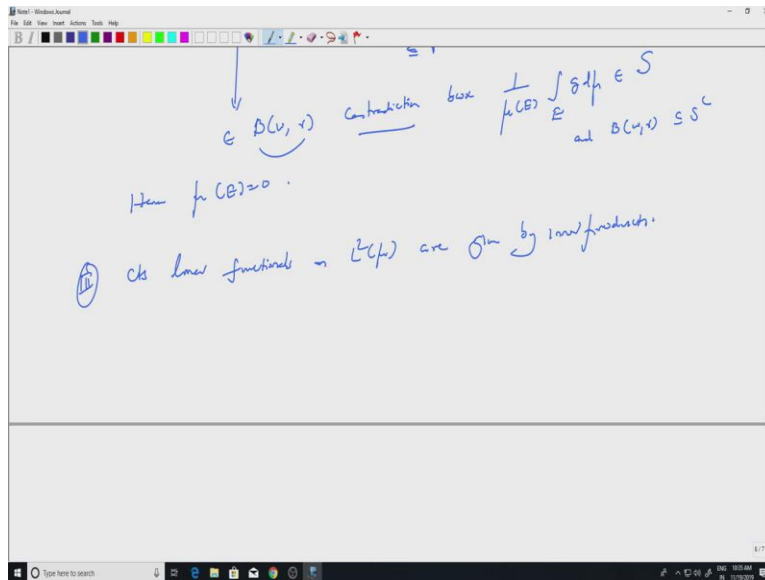 Note1 - Windows Journal
File Edit View Insert Actions Tools Help
B I
⊆
∈ B(w, r) Contradiction bcoz 1/μ(E) ∫_E g dμ ∈ S
and B(w, r) ⊆ S^c
Hence μ(E)=0.
III Cts linear functionals on L²(μ) are given by inner products.
6/7
Type here to search
ENG 10:35 AM
IN 11/19/2019